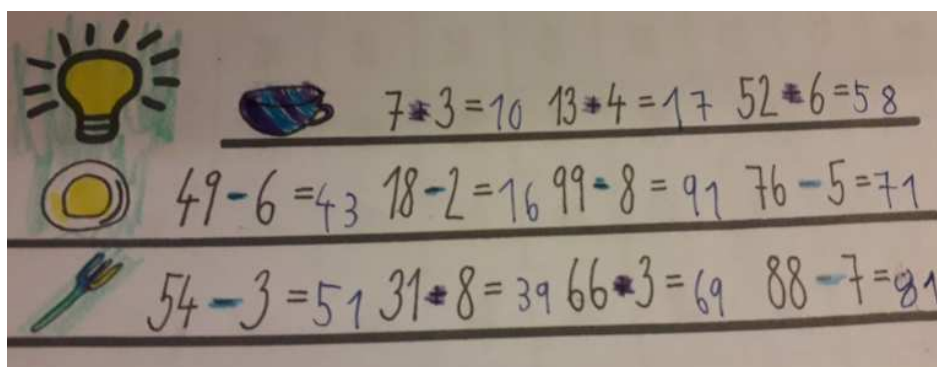 7+3=10 13+4=17 52+6=58
49-6=43 18-2=16 99-8=91 76-5=71
54-3=51 31+8=39 66+3=69 88-7=81